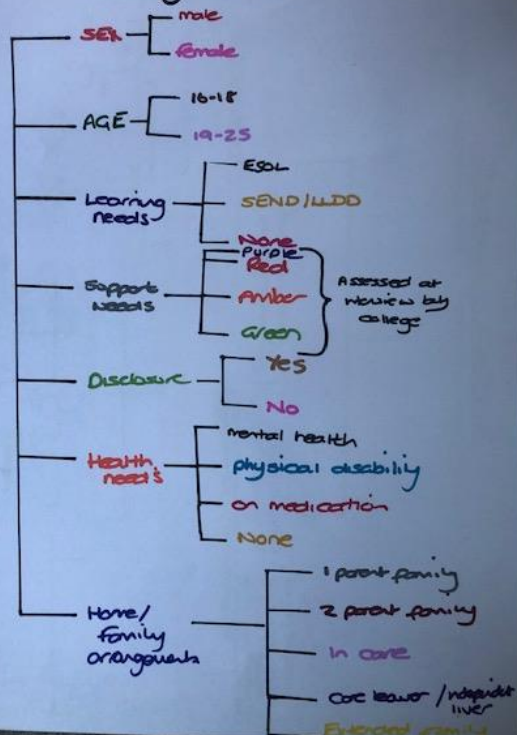 SEX
male
female
AGE
16-18
19-25
Learning
needs
ESOL
SEND/LLDD
None
Support
needs
Purple
Red
Amber
Green
Assessed at
interview by
college
Disclosure
Yes
No
Health
needs
mental health
physical disability
on medication
None
Home/
family
arrangements
1 parent family
2 parent family
In care
Care leaver / independent
liver
Extended family